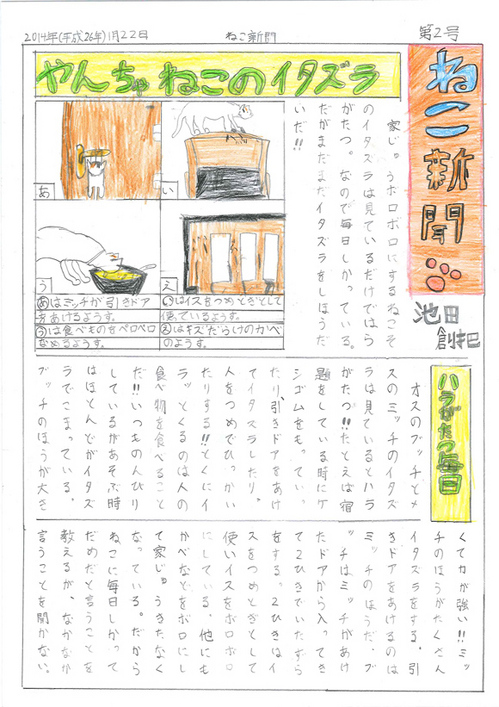 2014年(平成26年)1月22日
ねこ新聞
第2号
ねこ新聞
池田
創紀
やんちゃねこのイタズラ
家じゅうボロボロにするねこそ
のイタズラは見ているだけではら
がたつ。なので毎日しかっている。
だがまだまだイタズラをしほうだ
いだ!!
あ
い
う
え
あはミッチが引きドア
をあけるようす。
いはイスをつめとぎとして
使っているようす。
うは食べものをペロペロ
なめるようす。
えはキズだらけのカベ
のようす。
ハラがたつ毎日
オスのブッチとメ
スのミッチのイタズ
ラは見ているとハラ
がたつ!!たとえば宿
題をしている時にケ
シゴムをもっていっ
たり、引きドアをあけ
てイタズラしたり。
人をつめでひっかい
たりする!!とくにイ
ラッとくるのは人の
食べ物を食べること
だ!!いつものんびり
しているがあそぶ時
はほとんどがイタズ
ラでこまっている。
ブッチのほうが大き
くて力が強い!!ミッ
チのほうがたくさん
イタズラをする。引
きドアをあけるのは
ミッチのほうだ。ブ
ッチはミッチがあけ
たドアから入ってき
て2ひきでいたずら
をする。2ひきはイ
スをつめとぎとして
使いイスをボロボロ
にしている。他にも
かべなどをボロにし
て家じゅうきたなく
なっている。だから
ねこに毎日しかって
だめだと言うことを
教えるが、なかなか
言うことを聞かない。